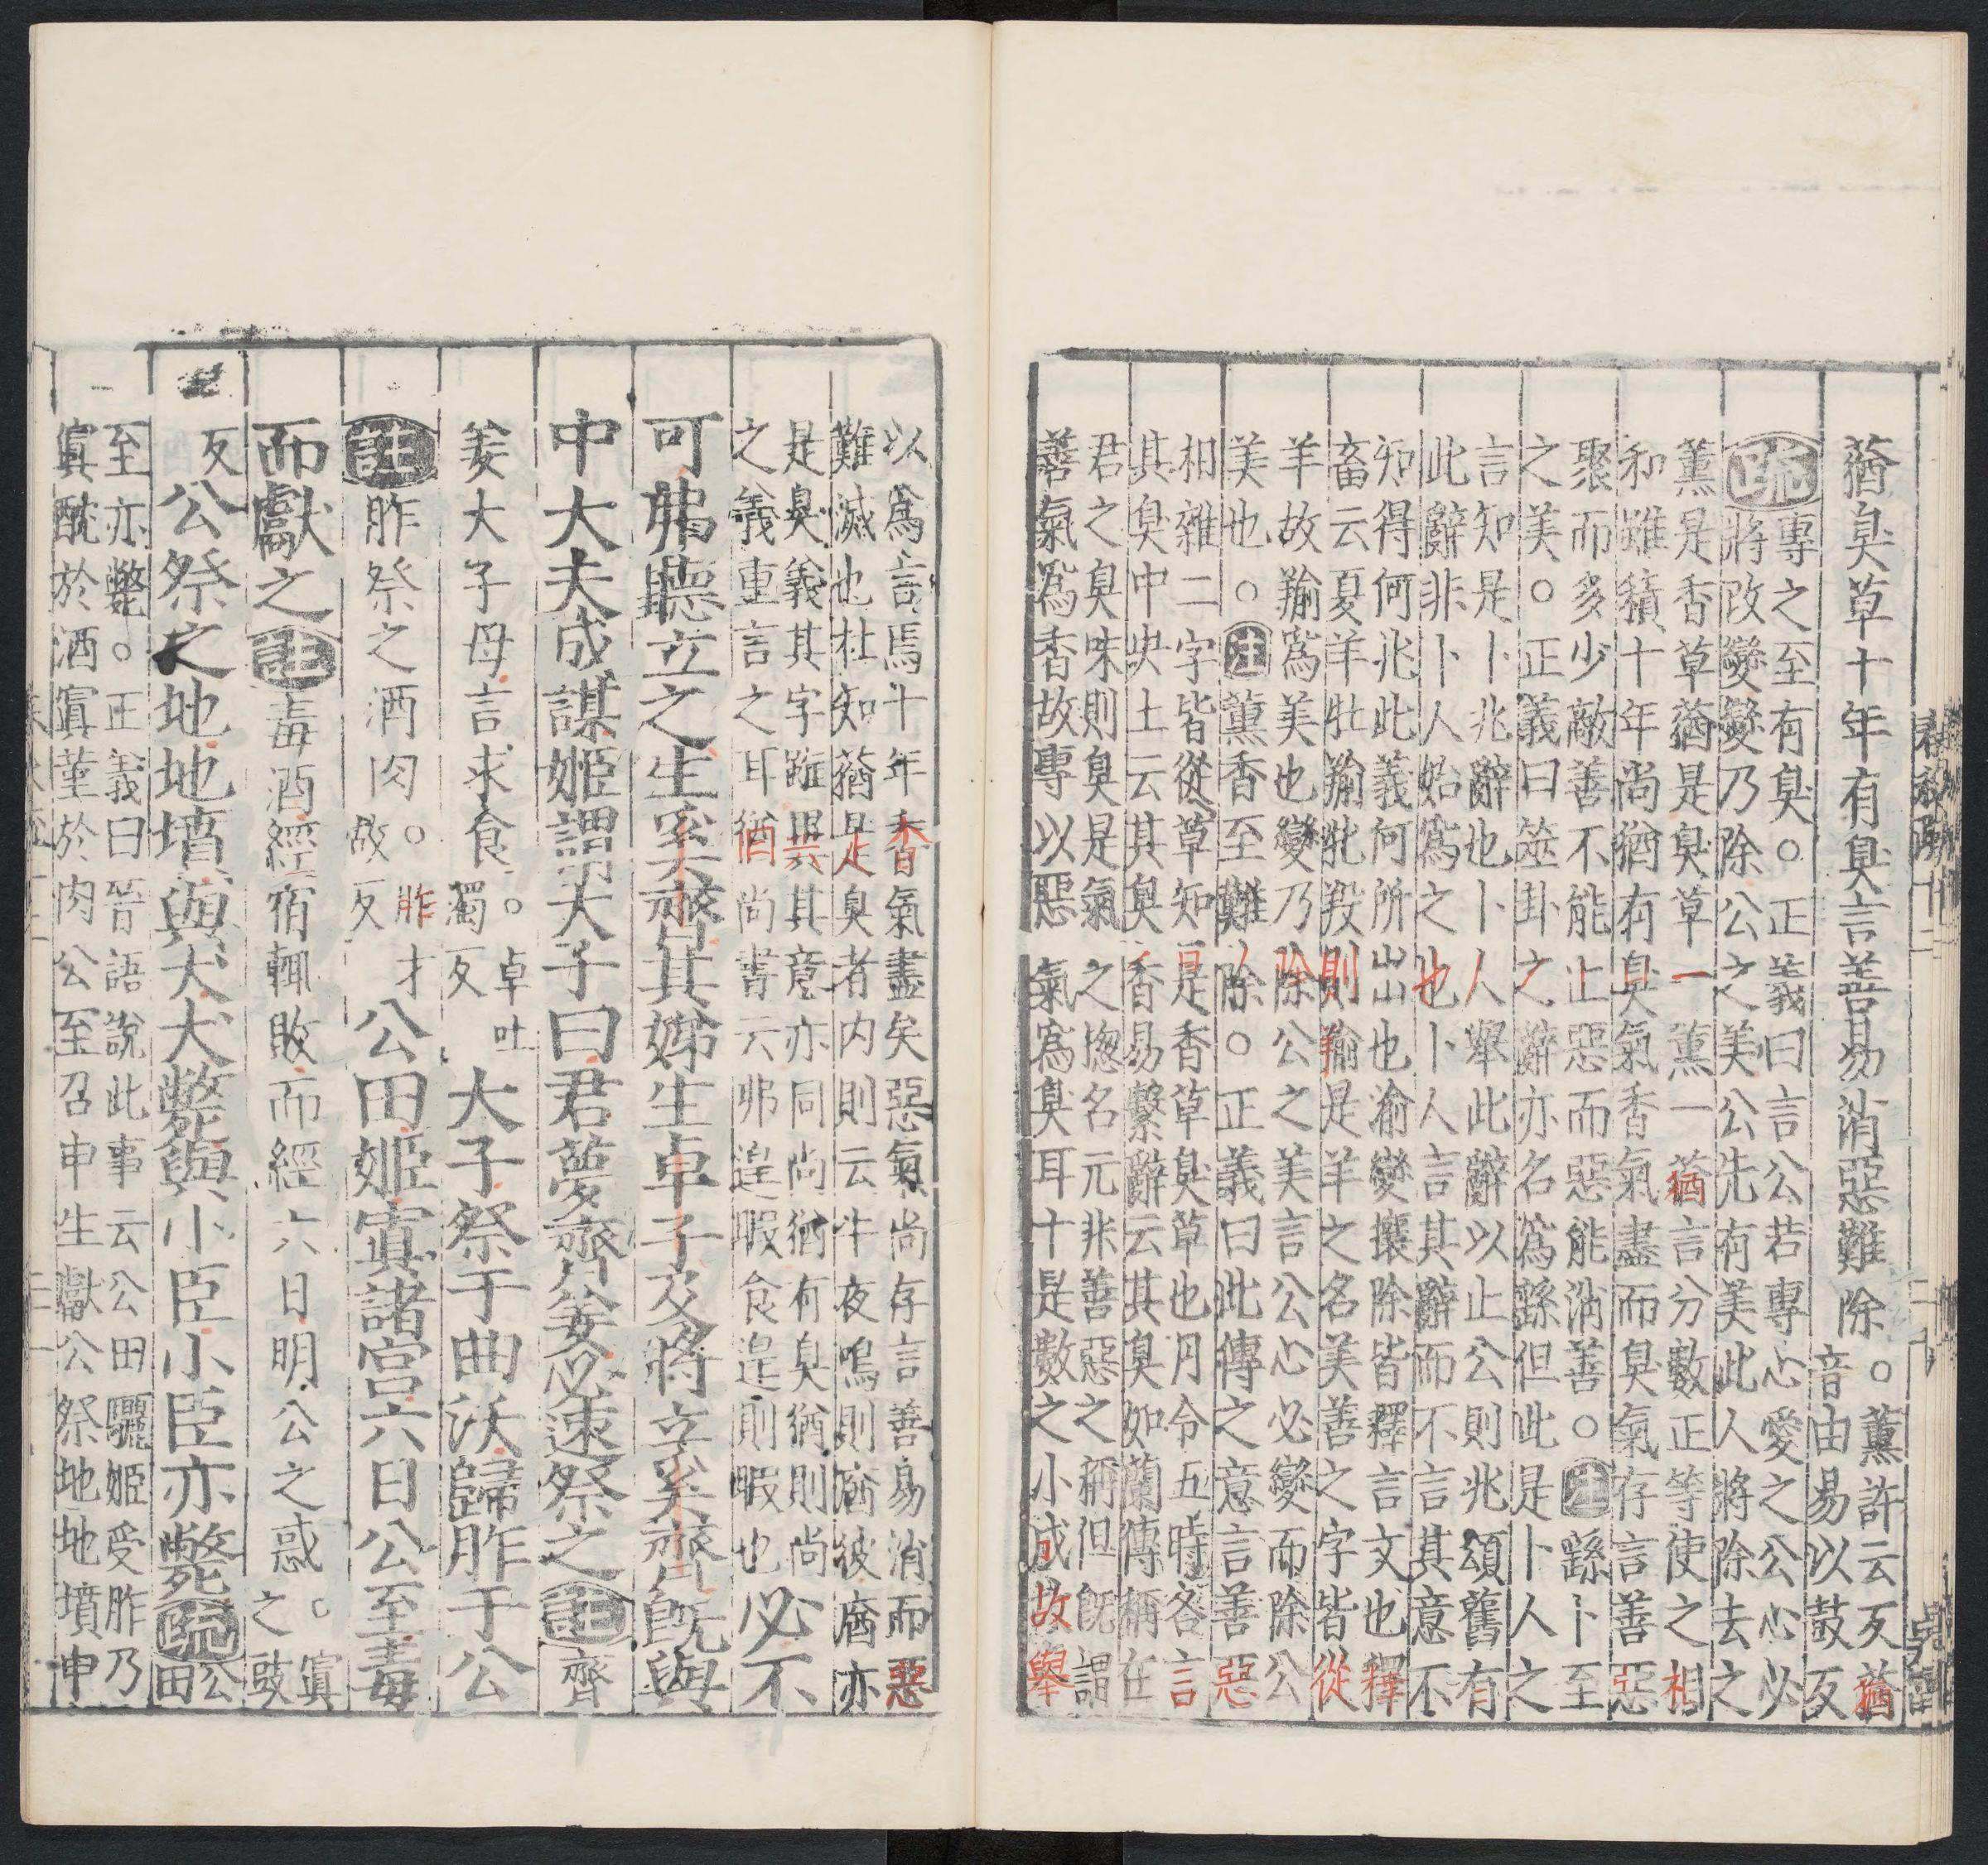 蕕臭草十年有臭言善易消惡難除○薰許云反蕕
音由易以鼓反
疏專之至有臭○正義曰言公若專心愛之公心必
將改變變乃除公之美公先有美此人將除去之
薰是香草蕕是臭草一薰一蕕言分數正等使之相
和雖積十年尚猶有臭氣香氣盡而臭氣存言善惡
聚而多少敵善不能止惡而惡能消善○注繇卜至
之美○正義曰筮卦之辭亦名爲繇但此是卜人之
言知是卜兆辭也卜人舉此辭以止公則兆頌舊有
此辭非卜人始爲之也卜人言其辭而不言其意不
知得何兆此義何所出也渝變攘除皆釋言文也釋
畜云夏羊牡羭牝羖則羭是羊之名美善之字皆從
羊故羭爲美也變乃除公之美言公心必變而除公
美也○注薰香至難除○正義曰此傳之意言善惡
相雜二字皆從草知是香草臭草也月令五時各言
其臭中央土云其臭香易繫辭云其臭如蘭傳稱在
君之臭味則臭是氣之揔名元非善惡之稱但旣謂
善氣爲香故專以惡氣爲臭耳十是數之小成故舉
以爲言焉十年香氣盡矣惡氣尚存言善易消而惡
難滅也杜知蕕是臭者內則云牛夜鳴則庮彼庮亦
是臭義其字雖異其意亦同尚猶有臭猶則尚
之義重言之耳猶尚書云弗遑暇食遑則暇也必不
可弗聽立之生奚齊其娣生卓子及將立奚齊旣與
中大夫成謀姬謂大子曰君夢齊姜必速祭之註齊
姜大子母言求食○卓吐
濁反大子祭于曲沃歸胙于公
註胙祭之酒肉○胙才
故反公田姬寘諸宮六日公至毒
而獻之註毒酒經宿輒敗而經六日明公之惑○寘
之豉
反公祭之地地墳與犬犬斃與小臣小臣亦斃疏公
田
至亦斃○正義曰晉語說此事云公田驪姬受胙乃
寘酖於酒寘菫於肉公至召申生獻公祭地地墳申